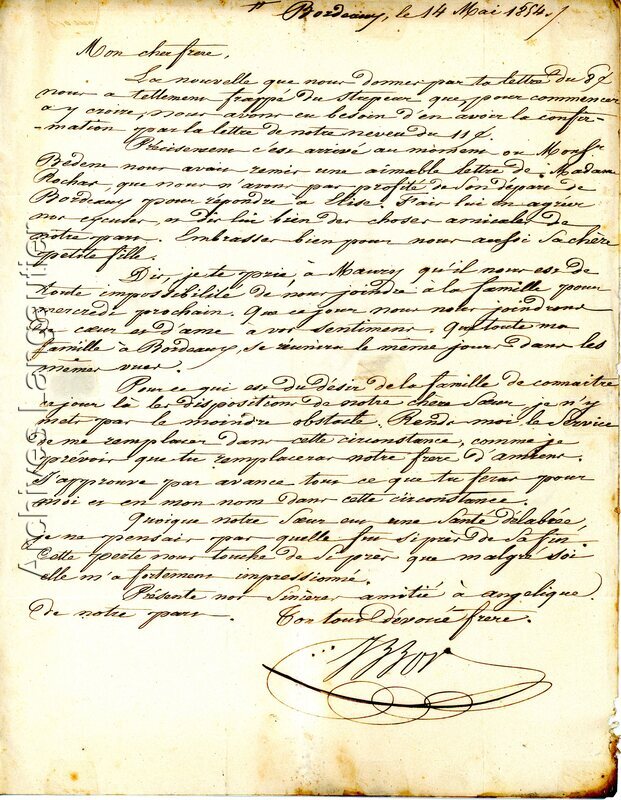 Bordeaux, le 14 Mai 1854
Mon cher frere,
La nouvelle que nous donnes par ta lettre du 8 ct
nous a tellement frappé du stupeur que, pour commencer
a y croire, nous avons eu besoin d'en avoir la confir-
-mation par la lettre de notre neveu du 11 ct.
Précisement c'est arrivé au moment ou Monsr
Bedene nous avait remis une aimable lettre de Madame
Rochas, que nous n'avons pas profité de son départ de
Bordeaux pour répondre a Elise. Fais lui en agréer
nos excuses, et dis lui bien des choses amicales de
notre part. Embrasses bien pour nous aussi sa chère
petite fille.
Dis, je te prie, à Maury qu'il nous est de
toute impossibilité de nous joindre à la famille pour
mercredi prochain. Que ce jour nous nous joindrons
de cœur et d'ame à vos sentimens. Que toute ma
famille à Bordeaux, se réunira le même jour dans les
mêmes vues.
Pour ce qui est du désir de la famille de connaitre
ce jour là les dispositions de notre chère Sœur je n'y
mets pas le moindre obstacle. Rends moi le Service
de me remplacer dans cette circonstance, comme je
prévois que tu remplaceras notre frere d'amiens.
J'approuve par avance tous ce que tu feras pour
moi et en mon nom dans cette circonstance.
Quoique notre Sœur eut une Santé délabrée,
je ne pensais pas quelle fut si près de Sa fin.
Cette perte nous touche de si près que malgré soi
elle m'a fortement impressionné.
Présente nos Sinceres amitié à angelique
de notre part. Ton tout dévoué frere.
Archives Langautier